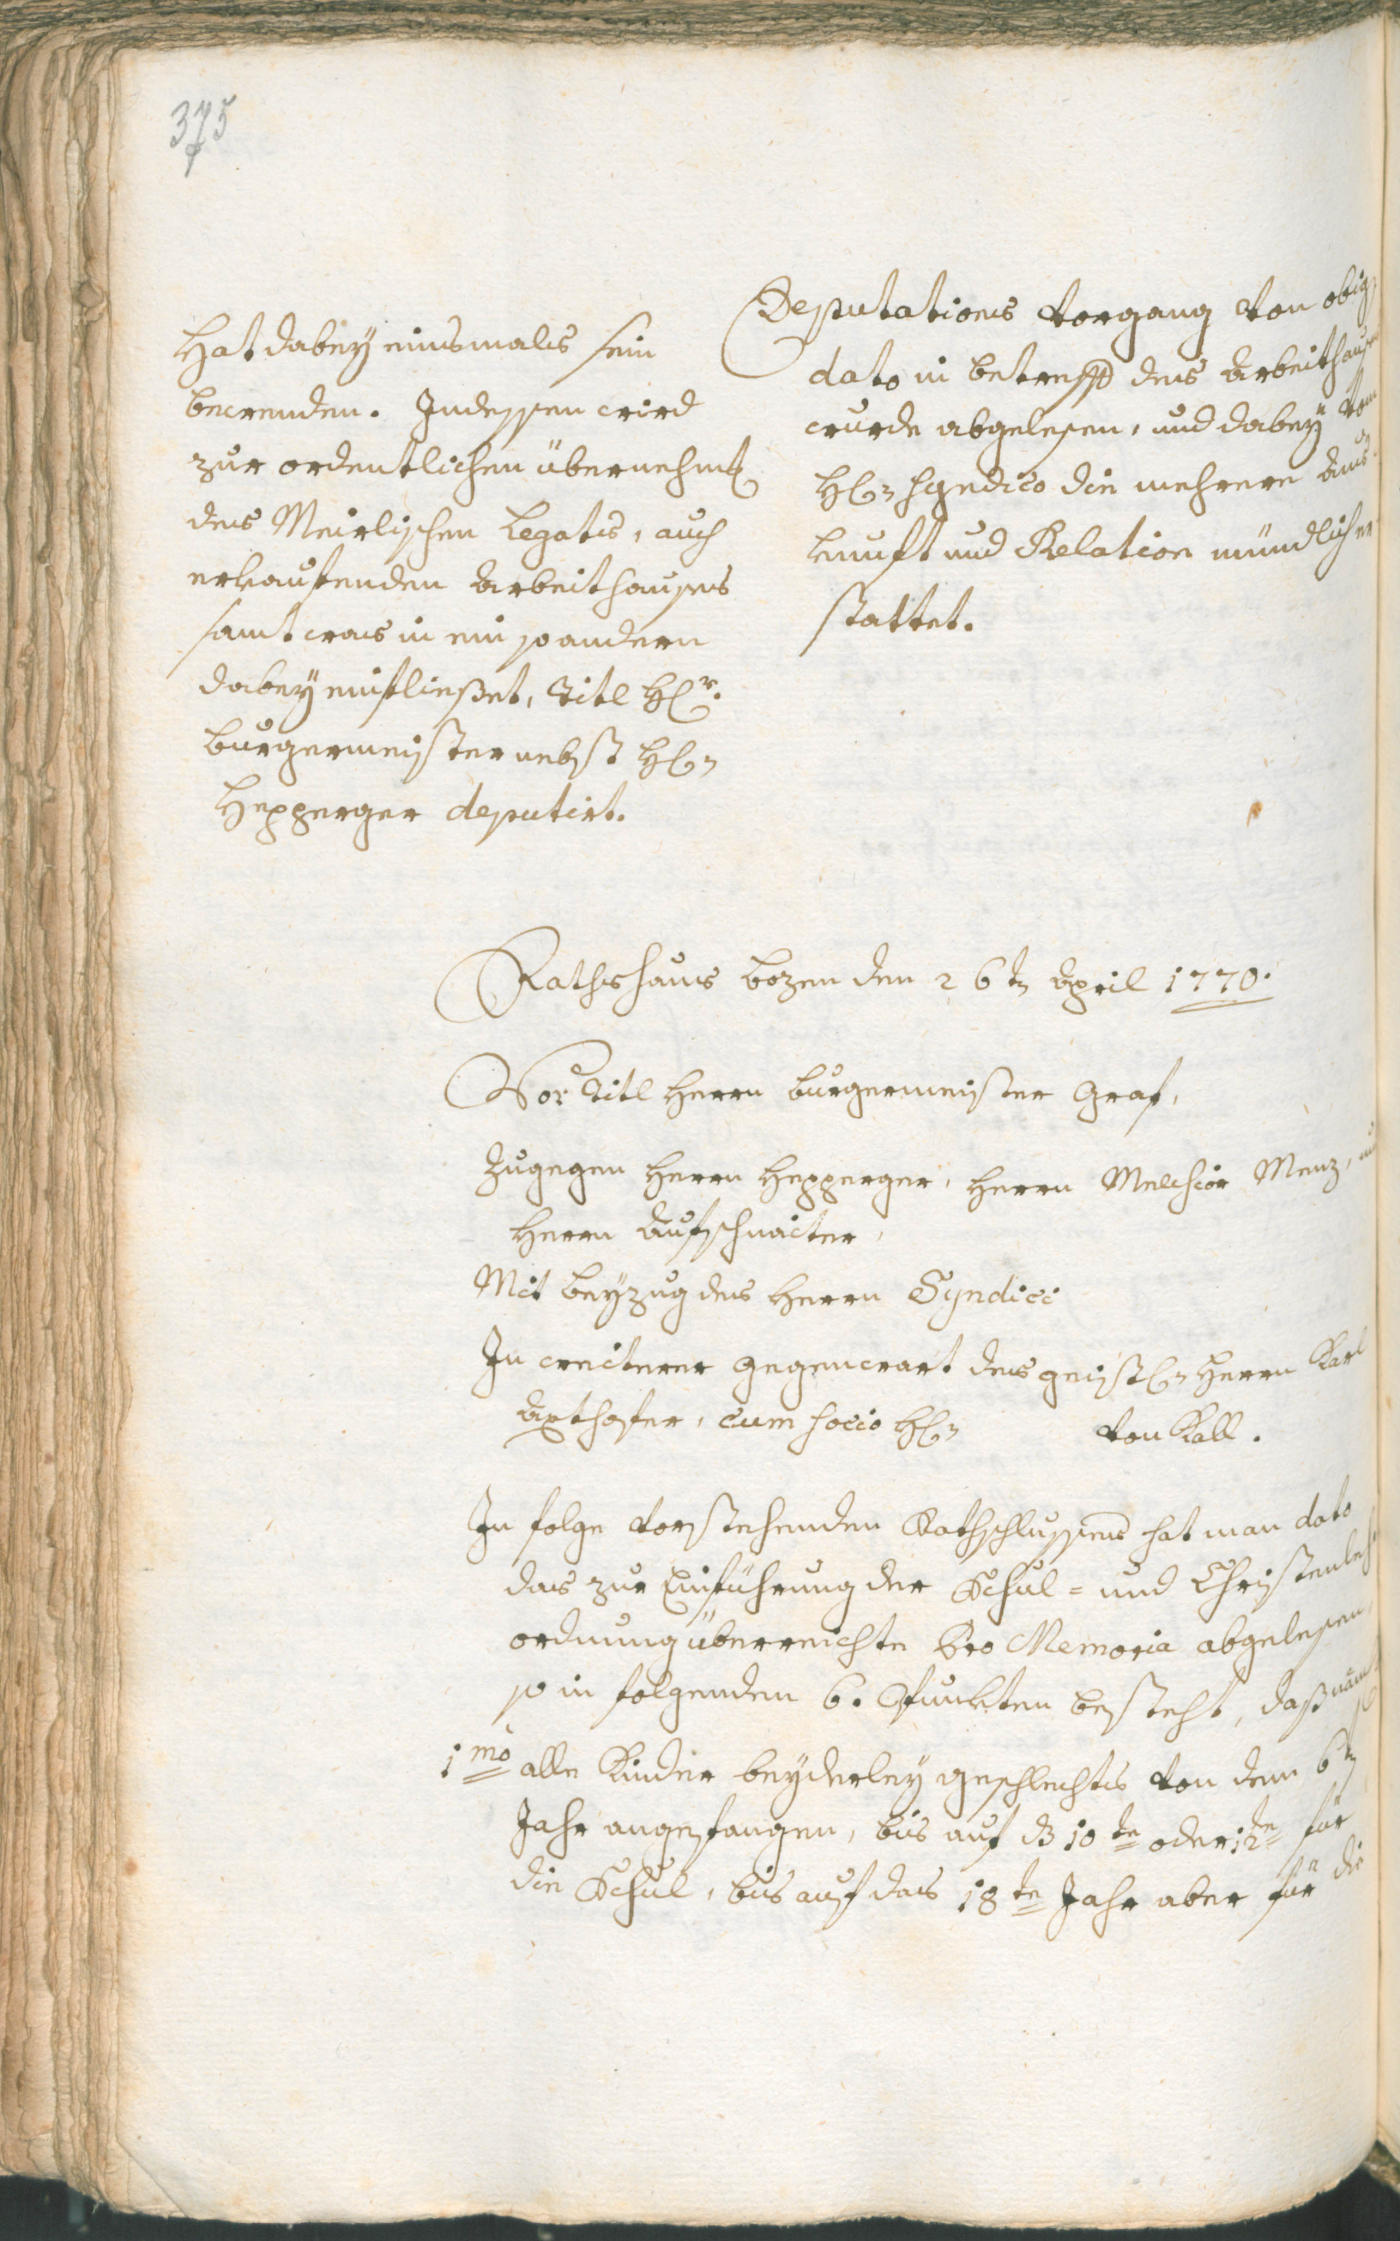 375
Hat dabey einsmals sein
bewenden. Indessen wird
zur ordentlichen übernehmung
des Meirlischen Legats, auch
erkaufenden Arbeithauses
samt was in ein so andern
dabey einfließet, Titl H(err)
burgermeister nebst H(err)n
Hepperger deputirt.
Deputations vorgang von obig
dato in betreff des Arbeithaus
wurde abgelesen, und dabey vom
H(err)n Syndico die mehrere Aus
kunft und Relation mündlich er
stattet.
Rathshaus bozen den 26tn April 1770.
Vor Titl Herrn burgermeister Graf,
Zugegen Herrn Hepperger, Herrn Melchior Menz, und
Herrn Aufschnaiter,
Mit beyzug des Herrn Syndici
In weiterer gegenwart des geistl(iche)n Herrn Karl
Axthofer, cum socio H(err)n von Kall.
In folge vorstehenden Rathschlusses hat man dato
das zur Einführung der Schul- und Christenleh
ordnung überreichte Pro Memoria abgelesen,
so in folgenden 6. Punkten besteht, daß näml
1mo alle Kinder beyderley geschlechts von dem 6tn
Jahr angefangen, bis auf ds 10te oder 12te für
die Schul, bis auf das 18te Jahr aber für die